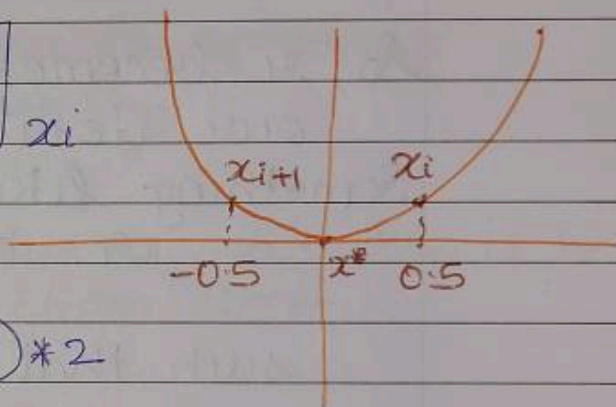 xi
xi+1 xi
-0.5 x* 0.5
)*2